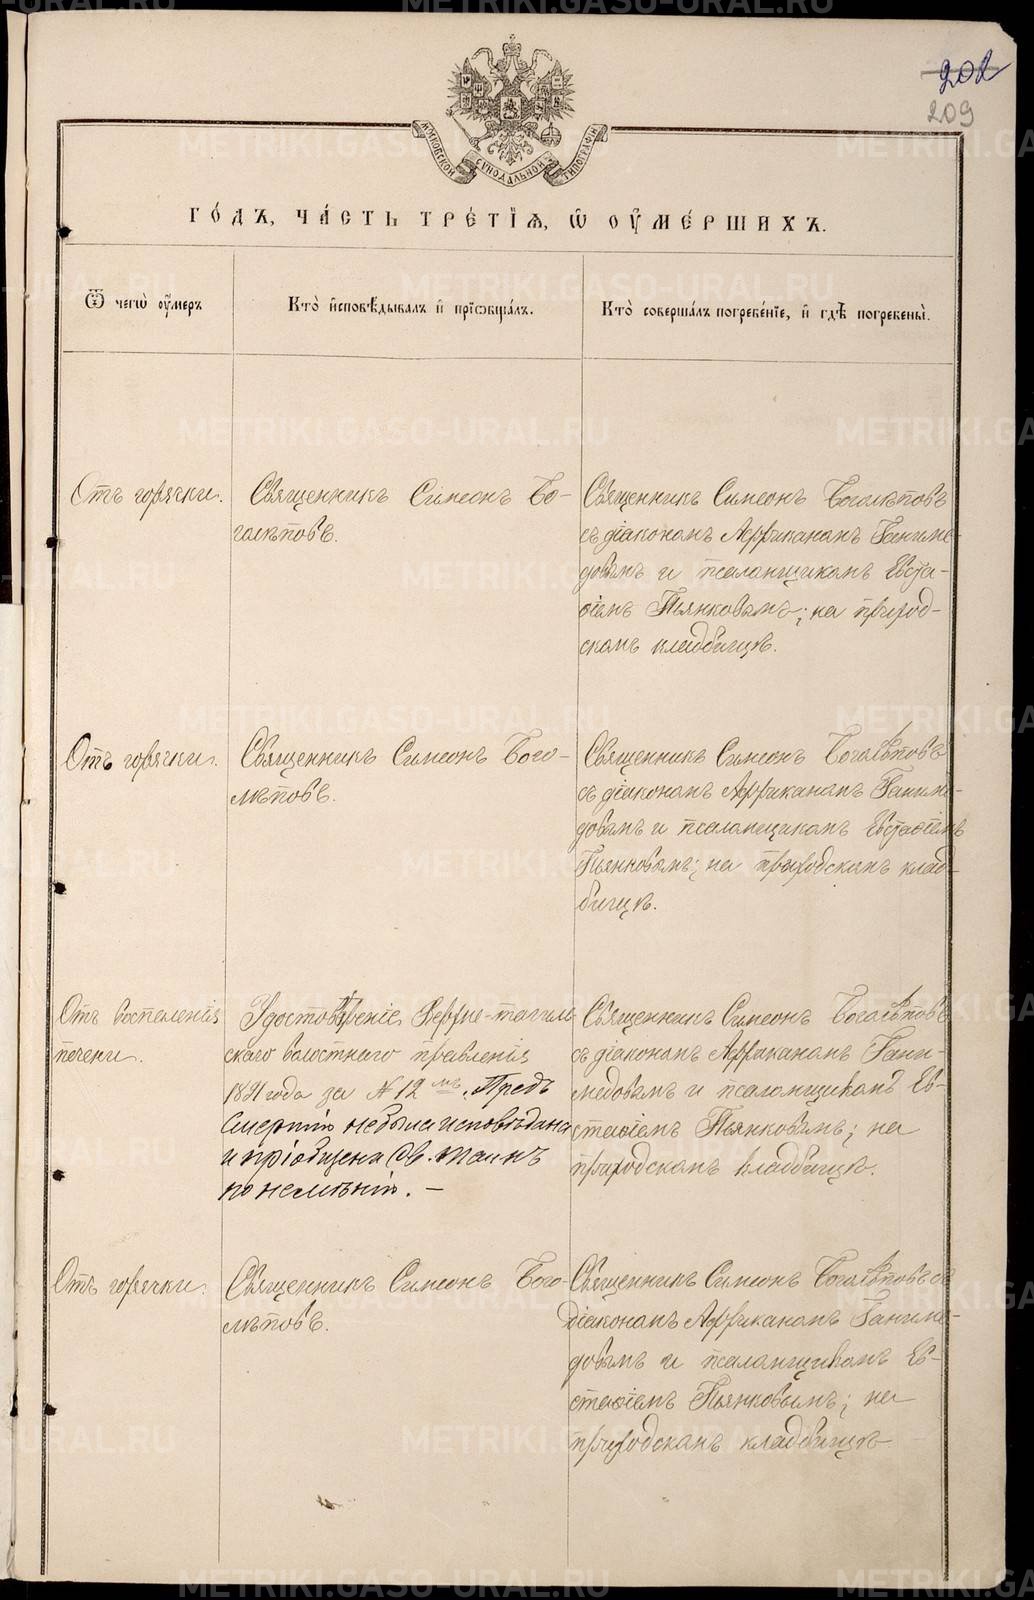 METRIKI.GASO-URAL.RU
202
209
МОСКОВСКОЙ СѴНОДАЛЬНОЙ ТИПОГРАФІИ
ГО́ДЪ, ЧА́СТЬ ТРЕ́ТІѦ, Ѡ҆ ОУ҆МЕ́РШИХЪ.
Ѿ чегѡ̀ оу҆́меръ
Кто̀ и҆сповѣ́дывалъ и҆ прїѡбща́лъ.
Кто̀ соверша́лъ погребе́нїе, и҆ гдѣ̀ погребены̀.
Отъ горячки.
Священникъ Симеонъ Бо-
голѣповъ.
Священникъ Симеонъ Боголѣповъ
съ діакономъ Африканомъ Ганиме-
довымъ и псаломщикомъ Евста-
ѳіемъ Пьянковымъ; на приход-
скомъ кладбищѣ.
Отъ горячки.
Священникъ Симеонъ Бого-
лѣповъ.
Священникъ Симеонъ Боголѣповъ
съ діакономъ Африканомъ Ганиме-
довымъ и псаломщикомъ Евстаѳіемъ
Пьянковымъ; на приходскомъ клад-
бищѣ.
Отъ воспаленія
печени.
Удостовѣреніе Верхне-тагиль-
скаго волостного правленія
1891 года за № 12 мъ. Предъ
Смертію не была исповѣдана
и пріобщена Св. таинъ
по неимѣнію. –
Священникъ Симеонъ Боголѣповъ
съ діакономъ Африканомъ Гани-
медовымъ и псаломщикомъ Ев-
стаѳіемъ Пьянковымъ; на
приходскомъ кладбищѣ.
Отъ горячки.
Священникъ Симеонъ Бого-
лѣповъ.
Священникъ Симеонъ Боголѣповъ съ
діакономъ Африканомъ Ганиме-
довымъ и псаломщикомъ Ев-
стаѳіемъ Пьянковымъ; на
приходскомъ кладбищѣ